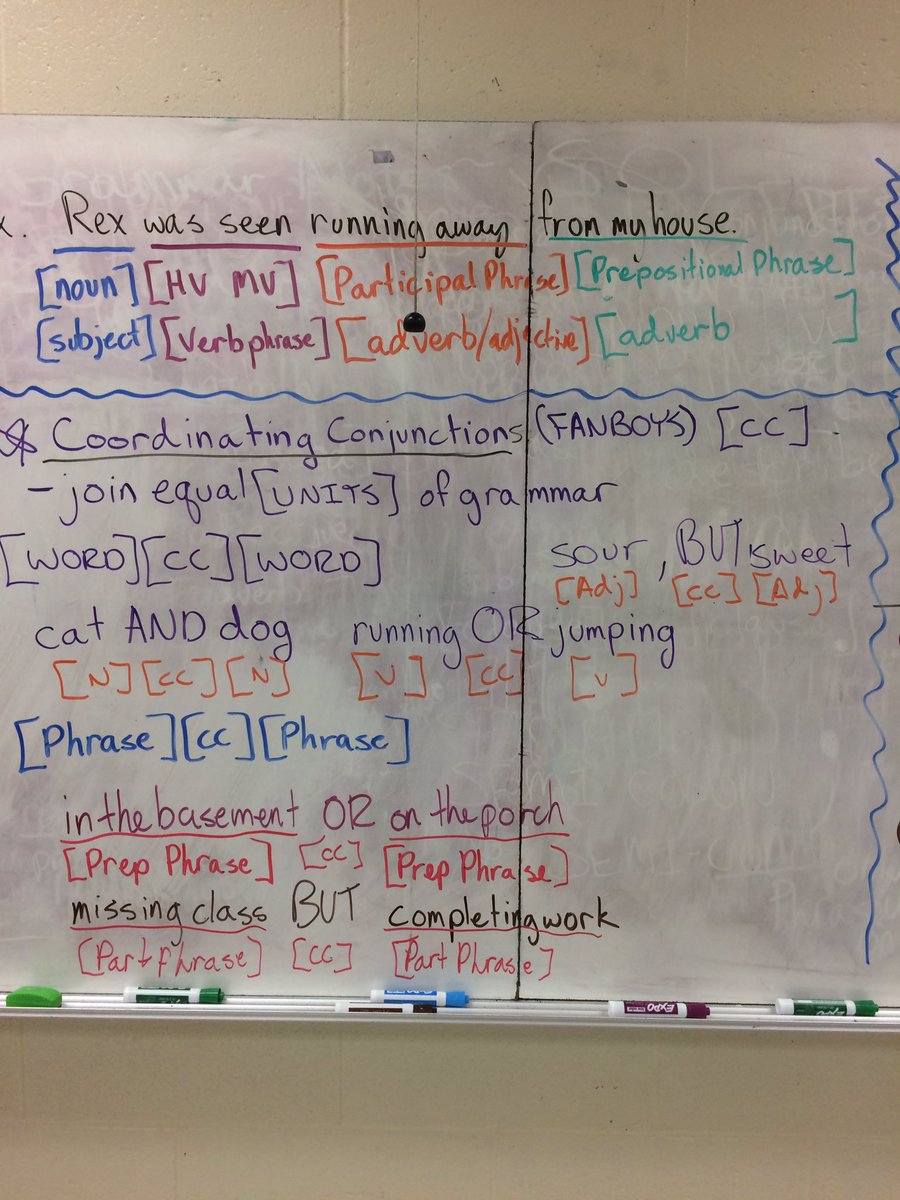 x. Rex was seen running away from my house.
[noun] [HV MV] [Participal Phrase] [Prepositional Phrase]
[subject] [Verb phrase] [adverb/adjective] [adverb ]
Coordinating Conjunctions (FANBOYS) [CC].
- join equal [UNITS] of grammar
[WORD] [CC] [WORD] sour, BUT sweet
[Adj] [CC] [Adj]
cat AND dog running OR jumping
[N] [CC] [N] [V] [CC] [V]
[Phrase] [CC] [Phrase]
in the basement OR on the porch
[Prep Phrase] [CC] [Prep Phrase]
missing class BUT completing work
[Part Phrase] [CC] [Part Phrase]
EXPO